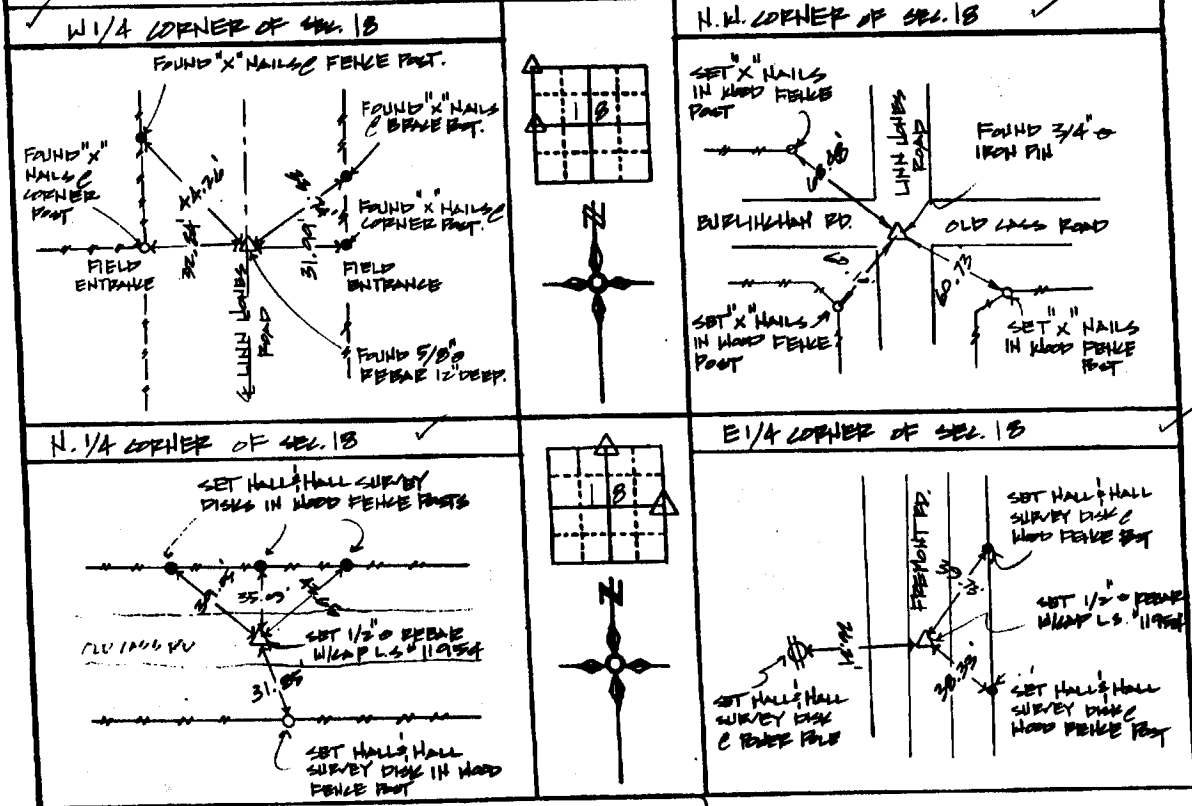 W 1/4 CORNER OF SEC. 18
FOUND "X" NAILS @ FENCE POST.
FOUND "X"
NAILS @
CORNER
POST
FOUND "X" NAILS
@ BRACE POST.
FOUND "X" NAILS @
CORNER POST.
44.26'
32.84'
31.99'
FIELD
ENTRANCE
FIELD
ENTRANCE
LINN JONES
ROAD
FOUND 5/8" ø
REBAR 12" DEEP.
18
N
N.W. CORNER OF SEC. 18
SET "X" NAILS
IN WOOD FENCE
POST
LINN JONES
ROAD
FOUND 3/4" ø
IRON PIN
BURLINGHAM RD.
OLD CASS ROAD
60.73
SET "X" NAILS
IN WOOD FENCE
POST
SET "X" NAILS
IN WOOD FENCE
POST
N. 1/4 CORNER OF SEC. 18
SET HALL & HALL SURVEY
DISKS IN WOOD FENCE POSTS
35.03'
OLD CASS RD
SET 1/2" ø REBAR
W/CAP L.S. # 11954
31.85'
SET HALL & HALL
SURVEY DISK IN WOOD
FENCE POST
18
N
E 1/4 CORNER OF SEC. 18
FREMONT RD.
SET HALL & HALL
SURVEY DISK @
WOOD FENCE POST
SET 1/2" ø REBAR
W/CAP L.S. # 11954
38.33'
SET HALL & HALL
SURVEY DISK
@ POWER POLE
SET HALL & HALL
SURVEY DISK @
WOOD FENCE POST